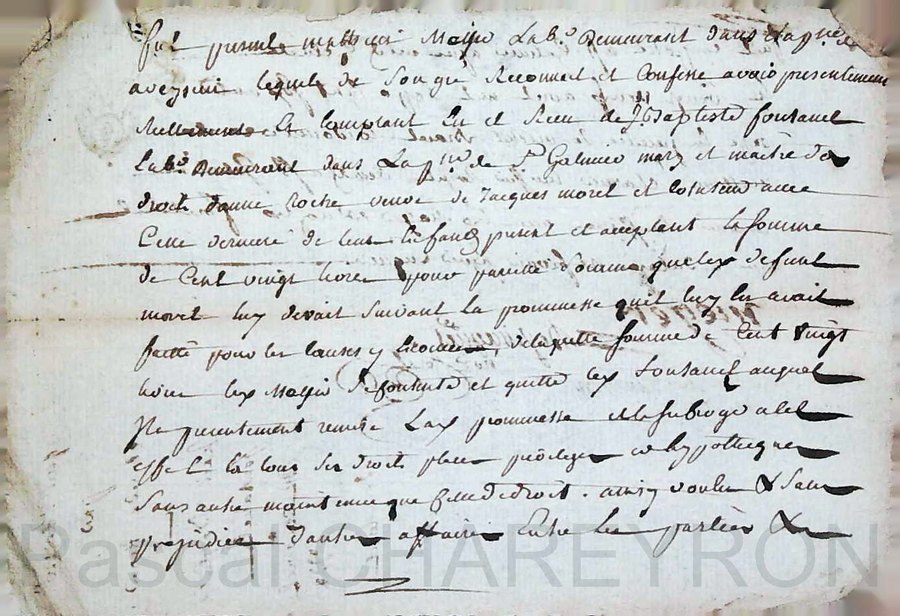 fut present Mathieu Mossu Lab.r demeurant dans la p.sse
aveysieu lequel de son gré Reconnait et Confesse avoir presentement
Reellement Et Comptant Eu et Receu de J. Baptiste fontanel
lab.r Demeurant dans La p.sse de S.t Galmier mary et maitre des
droits danne Roche veuve de Jacques morel et Cotuteur avec
Cette derniere de leurs Enfans present et acceptant la somme
de Cent vingt livres pour pareille somme que led. defunt
morel luy devait suivant la prommesse quil luy En avait
faitte pour les Causes y Enoncées, de laquelle somme de Cent vingt
livres led. se Contente et quitte led. fontanel auquel
Na presentement remise Lad. prommesse et la subrogé a cet
effet En tous ses droits place privileges et hypotheques
Sans autre maintenue que de droit. ainsy voulu & Sans
prejudice dautres affaires Entre les parties &
Pascal CHAREYRON